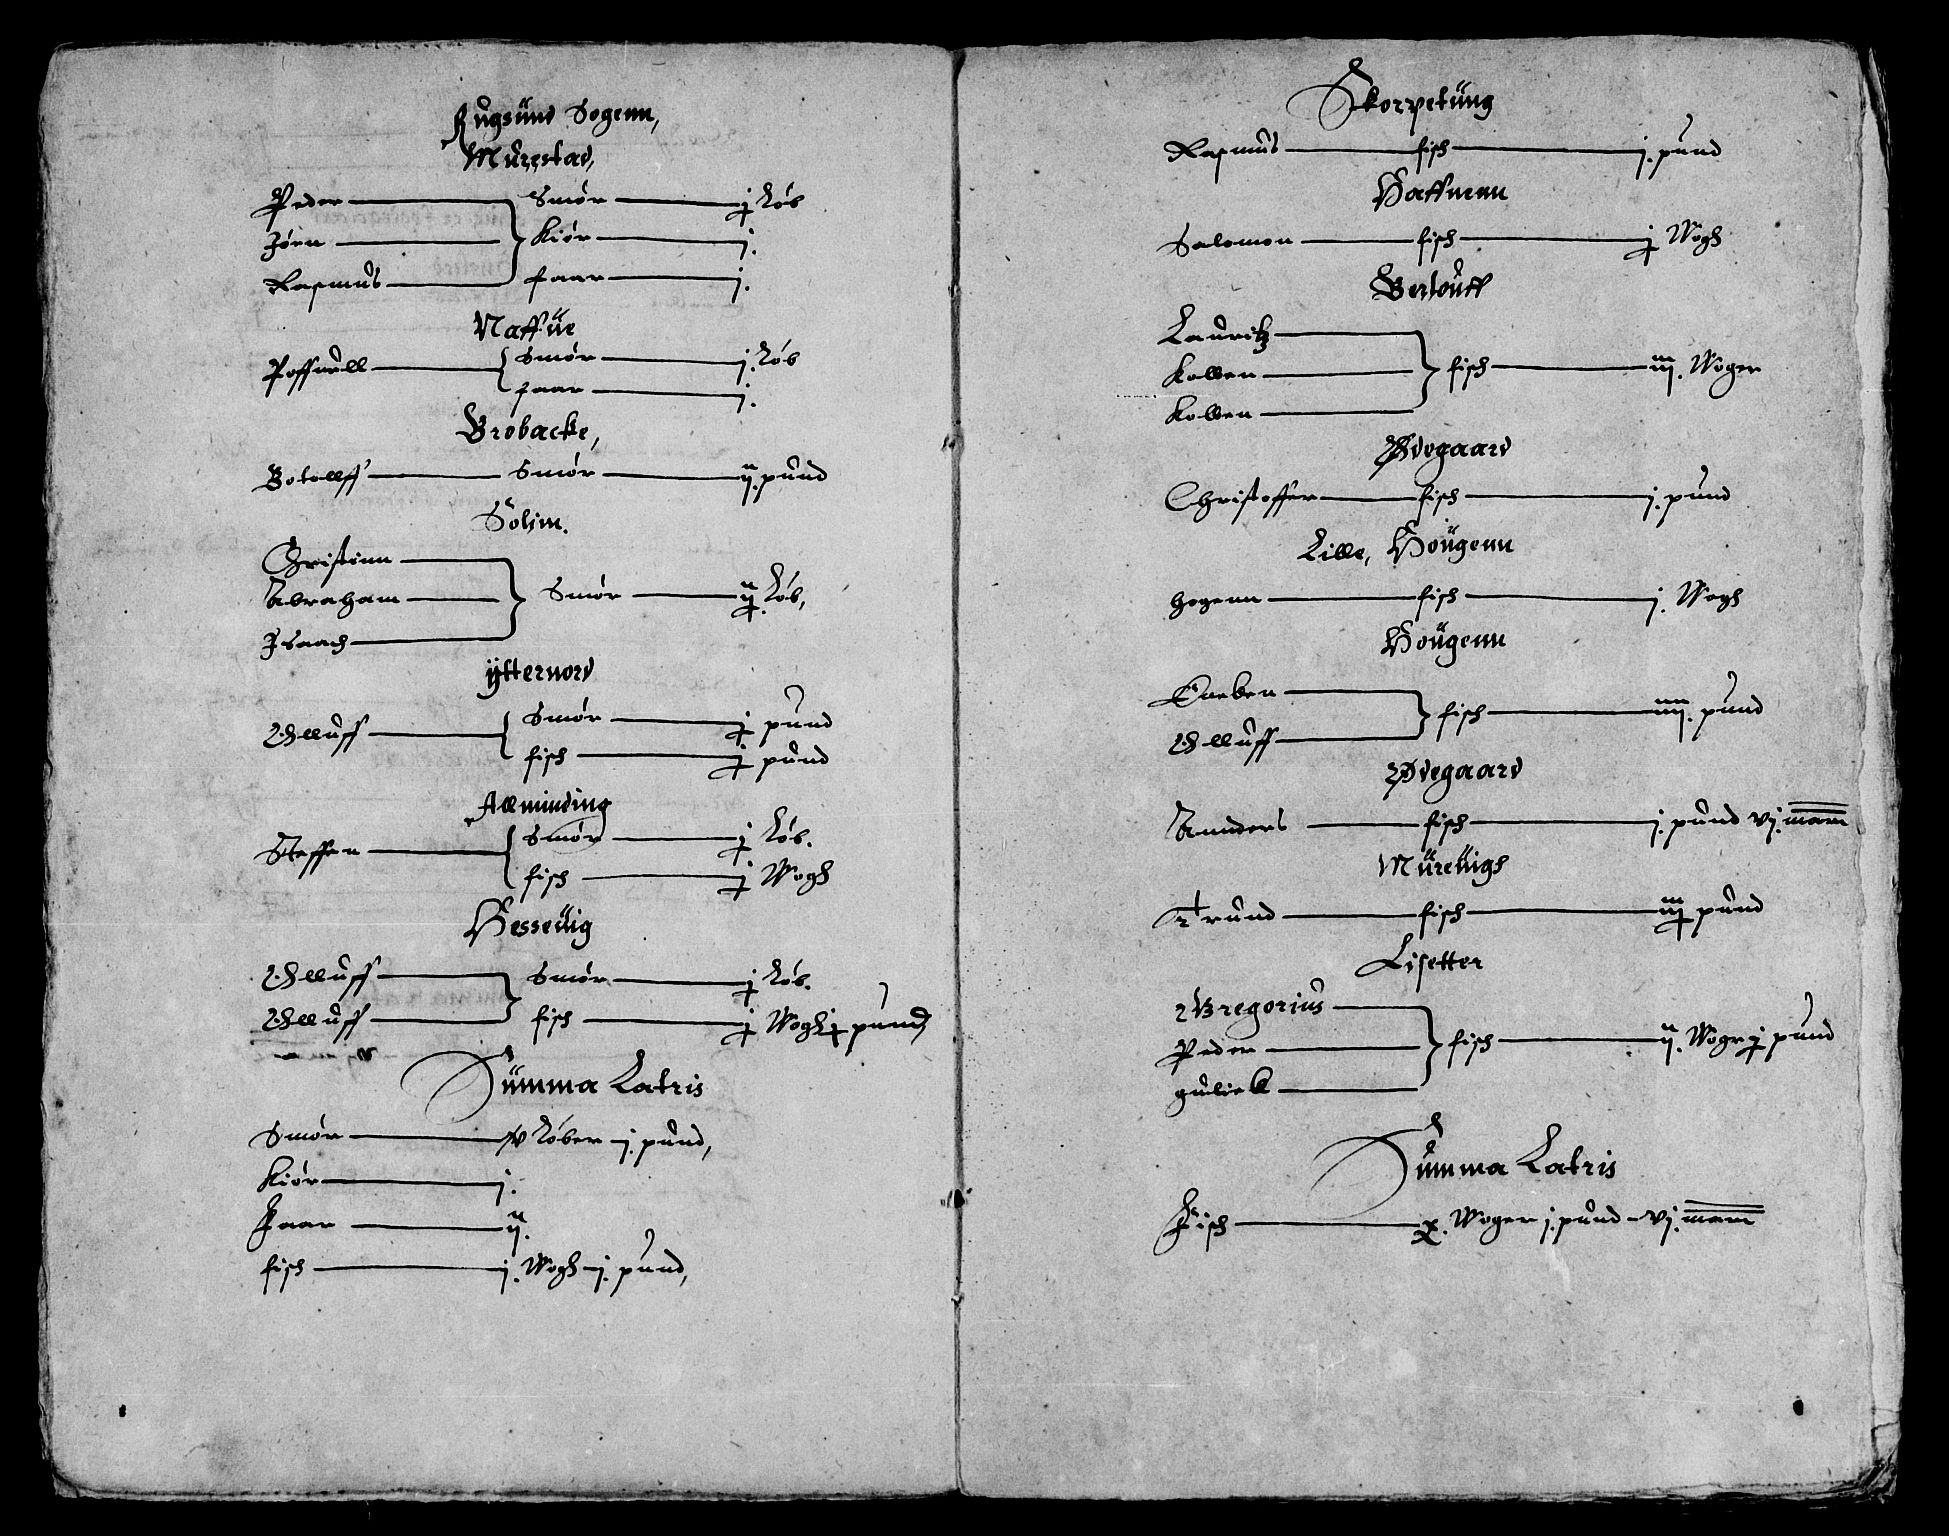 Rugsünd Sogenn,
Murestad,
Peder — Smör — j löb
Jörn — Kiör — j.
Rasmus — faar — j.
Naffüe
Poffuell — Smör — j. löb
faar — j.
Brobacke,
Botollff — Smör — ij. pund
Solim.
Christinn
Abraham — Smör — ij löb,
Isaach
ÿtternord
Olluff — Smör — j pund
fisch — j pund
Allminding
Steffen — Smör — j löb.
fisch — j Wogh
Hesseüig
Olluff — Smör — j löb.
Olluff — fisch — j Wogh j pund,
Summa Latris
Smör — v löber j. pund,
Kiör — j.
Faar — ij.
fisch — j. Wogh j. pund,
Skorpetüng
Rasmus — fisch — j. pund
Haffnenn
Salomon — fisch — j Wogh
Berlöüff
Lauritz
Kolben — fisch — iij. Woger
Kolben
Ødegaard
Christoffer — fisch — j. pund
Lille, Hougenn
hogenn — fisch — j. Wogh
Hougenn
Eneben — fisch — iiij. pund
Olluff
Ødegaard
Annders — fisch — j. pund vj. mare
Müreüigh
Trund — fisch — iij pund
Lisetter
Gregorius
Peder — fisch — ij. Woge j pund
gulick
Summa Latris
Fisch — x. Woger j. pund vj. mare